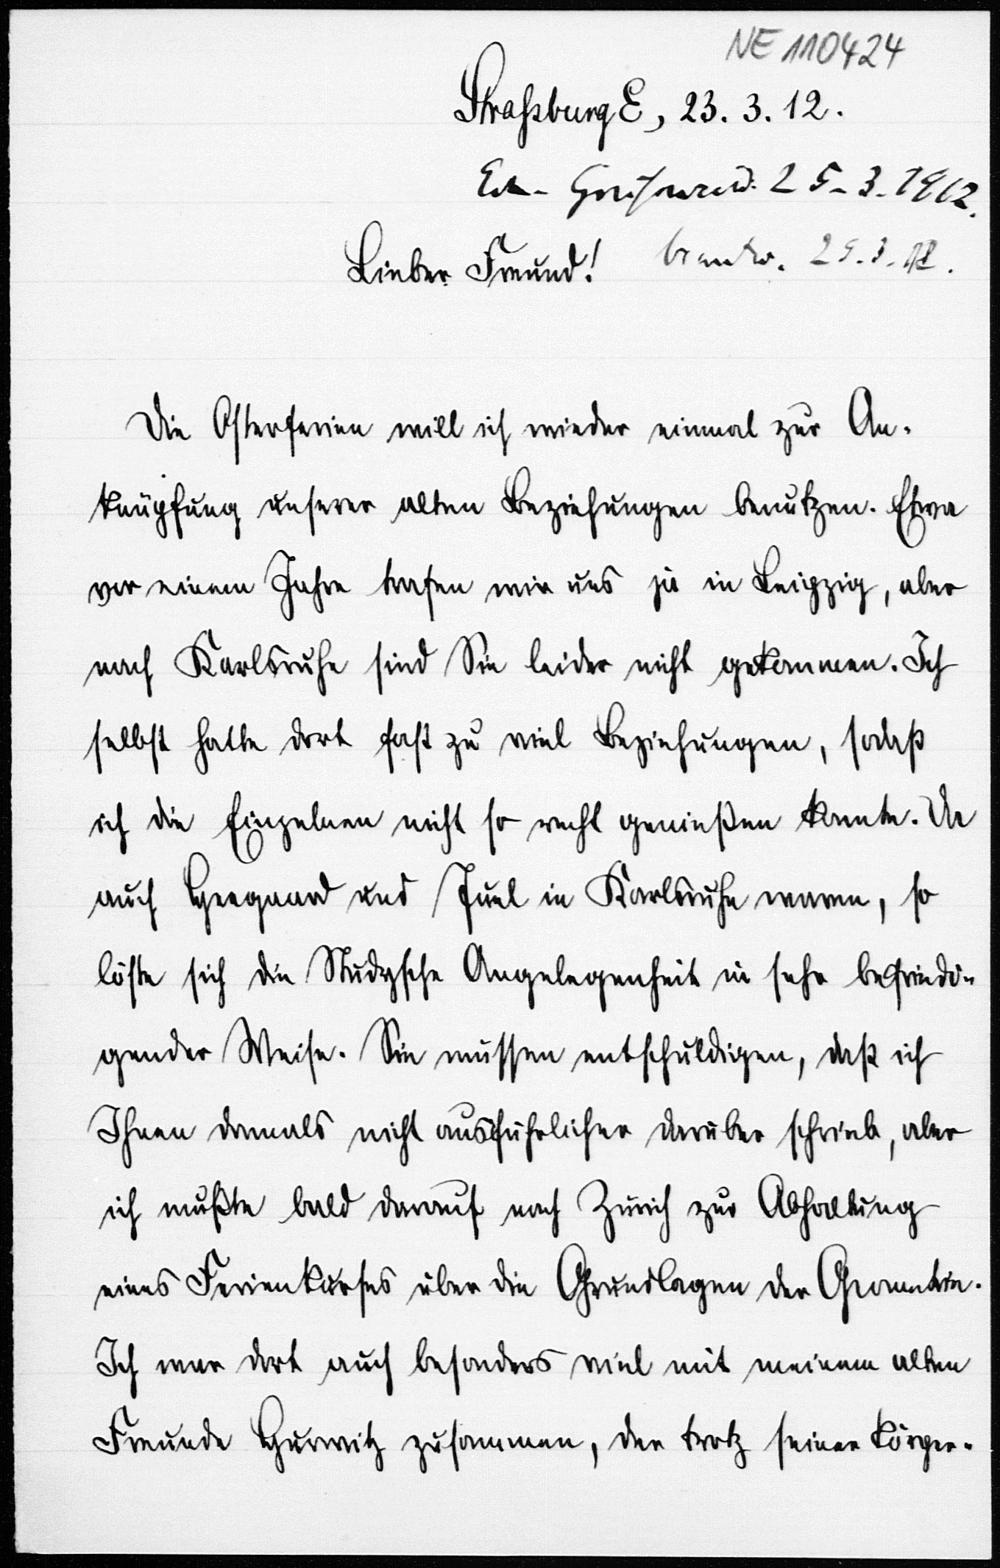 NE 110424
Straßburg E, 23. 3. 12.
Erh. Greifswald. 25. 3. 1912.
Lieber Freund! beantw. 29. 3. 12.
Die Osterferien will ich wieder einmal zur An-
knüpfung unserer alten Beziehungen benutzen. Etwa
vor einem Jahre trafen wir uns ja in Leipzig, aber
nach Karlsruhe sind Sie leider nicht gekommen. Ich
selbst hatte dort fast zu viel Beziehungen, sodaß
ich die Einzelnen nicht so recht genießen konnte. Da
auch Heegaard und Juel in Karlsruhe waren, so
löste sich die Studysche Angelegenheit in sehr befriedi-
gender Weise. Sie müssen entschuldigen, daß ich
Ihnen damals nicht ausführlicher darüber schrieb, aber
ich mußte bald darauf nach Zürich zur Abhaltung
eines Ferienkurses über die Grundlagen der Geometrie.
Ich war dort auch besonders viel mit meinem alten
Freunde Hurwitz zusammen, der trotz seiner körper-